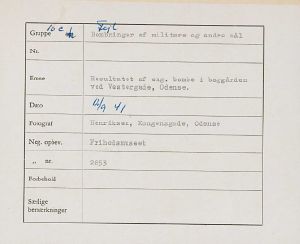 Gruppe 10 c Bombninger af militære og andre mål
Nr.
Emne Resultatet af eng. bombe i baggården
ved Vestergade, Odense.
Dato 12/9 41
Fotograf Henriksen, Kongensgade, Odense
Neg. opbev. Frihedsmuseet
„ nr. 2653
Forbehold
Særlige
bemærkninger